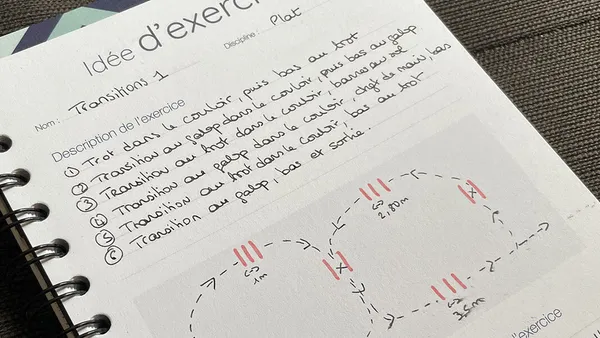 Idée d'exerci
Discipline : Plat
Nom : Transitions 1
Description de l'exercice
① Trot dans le couloir, puis bas au trot
② Transition au galop dans le couloir, puis bas au galop
③ Transition au trot dans le couloir, barres au sol
④ Transition au galop dans le couloir, chgt de main, bas
⑤ Transition au trot dans le couloir, bas au trot
⑥ Transition au galop, bas et sortie.
2,80m
1m
3,5m
exercice